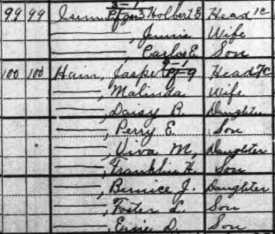 99 99 Holbert B. Head 1C
——, Jennie Wife
——, Carlos E. Son
100 100 Hain, Jasper Head 7C
——, Malinda Wife
——, Daisy P. Daughter
——, Perry E. Son
——, Viva M, Daughter
——, Franklin H. Son
——, Bernice J. Daughter
——, Foster L. Son
——, Ernie D. Son